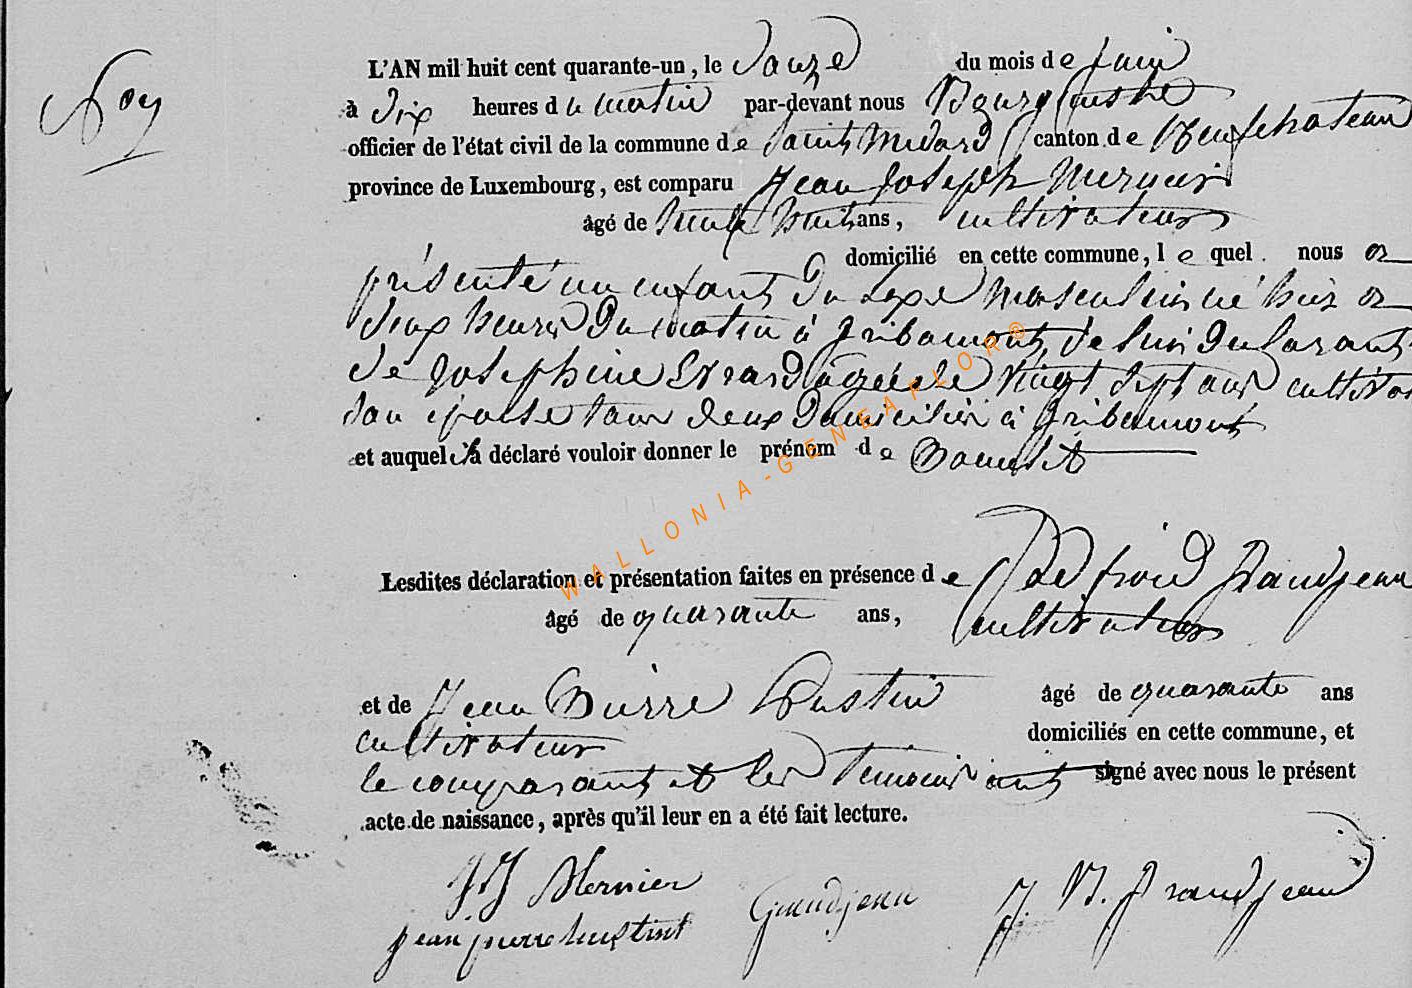 L'AN mil huit cent quarante-un, le Douze du mois de juin
à Dix heures du matin par-devant nous Bourgmestre
officier de l'état civil de la commune de Saint Medard canton de Neufchateau
province de Luxembourg, est comparu Jean Joseph Mernier
âgé de trente huit ans, cultivateur
domicilié en cette commune, lequel nous a
présenté un enfant du sexe masculin né hier a
deux heures du matin à Gribamont de lui Déclarant
de Josephine Evrard agée de vingt sept ans cultiva
son epouse tous deux Domiciliés à Gribamont
et auquel il a déclaré vouloir donner le prénom de
Lesdites déclaration et présentation faites en présence de Godfroid Grandjean
âgé de quarante ans, cultivateur
et de Jean Pierre Lustin âgé de quarante ans
cultivateur domiciliés en cette commune, et
le comparant et les temoins ont signé avec nous le présent
acte de naissance, après qu'il leur en a été fait lecture.
JJ Mernier
Grandjean J. B. Grandjean
jean pierre lustin
WALLONIA-GENEAFLOR®